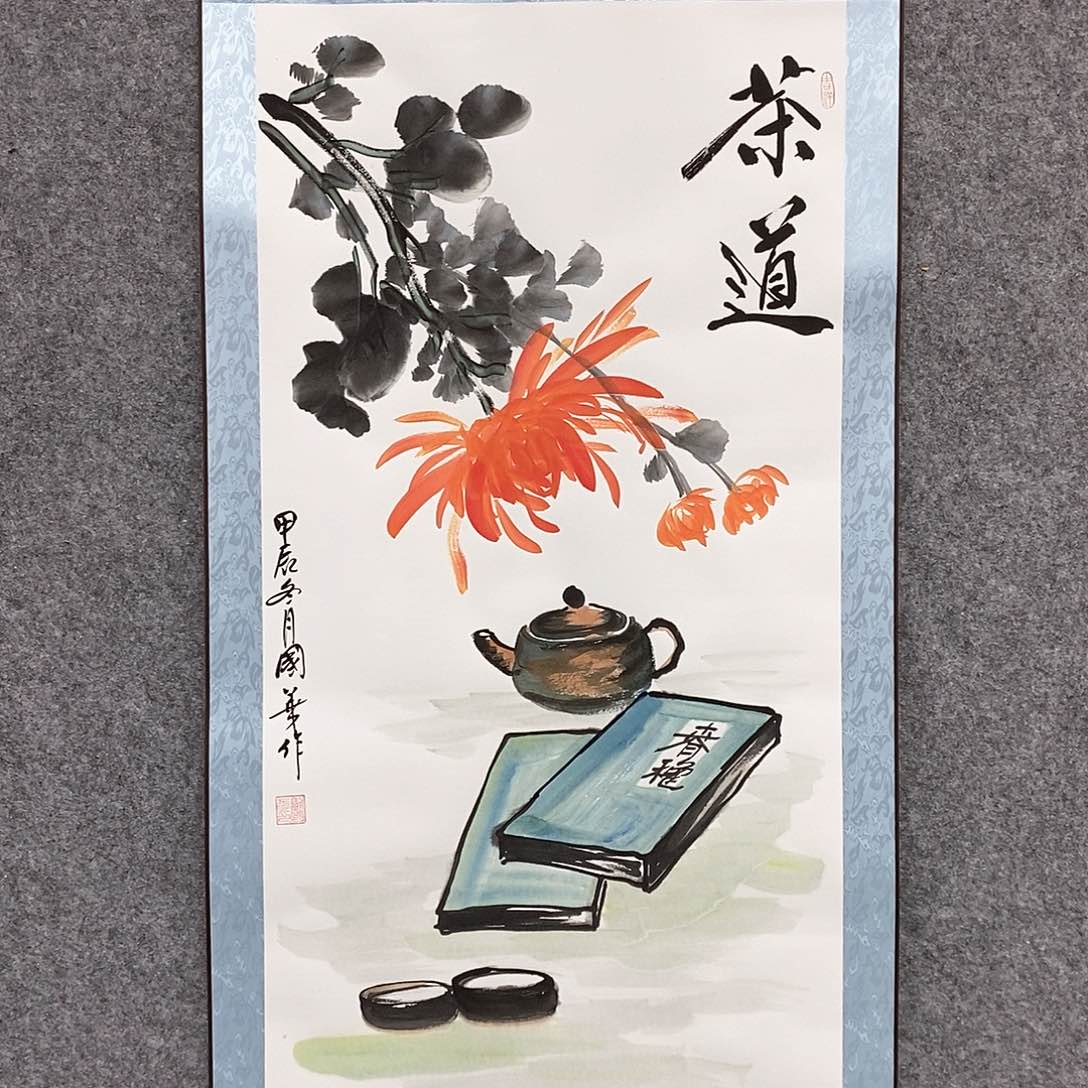 茶道
甲辰冬月國華作